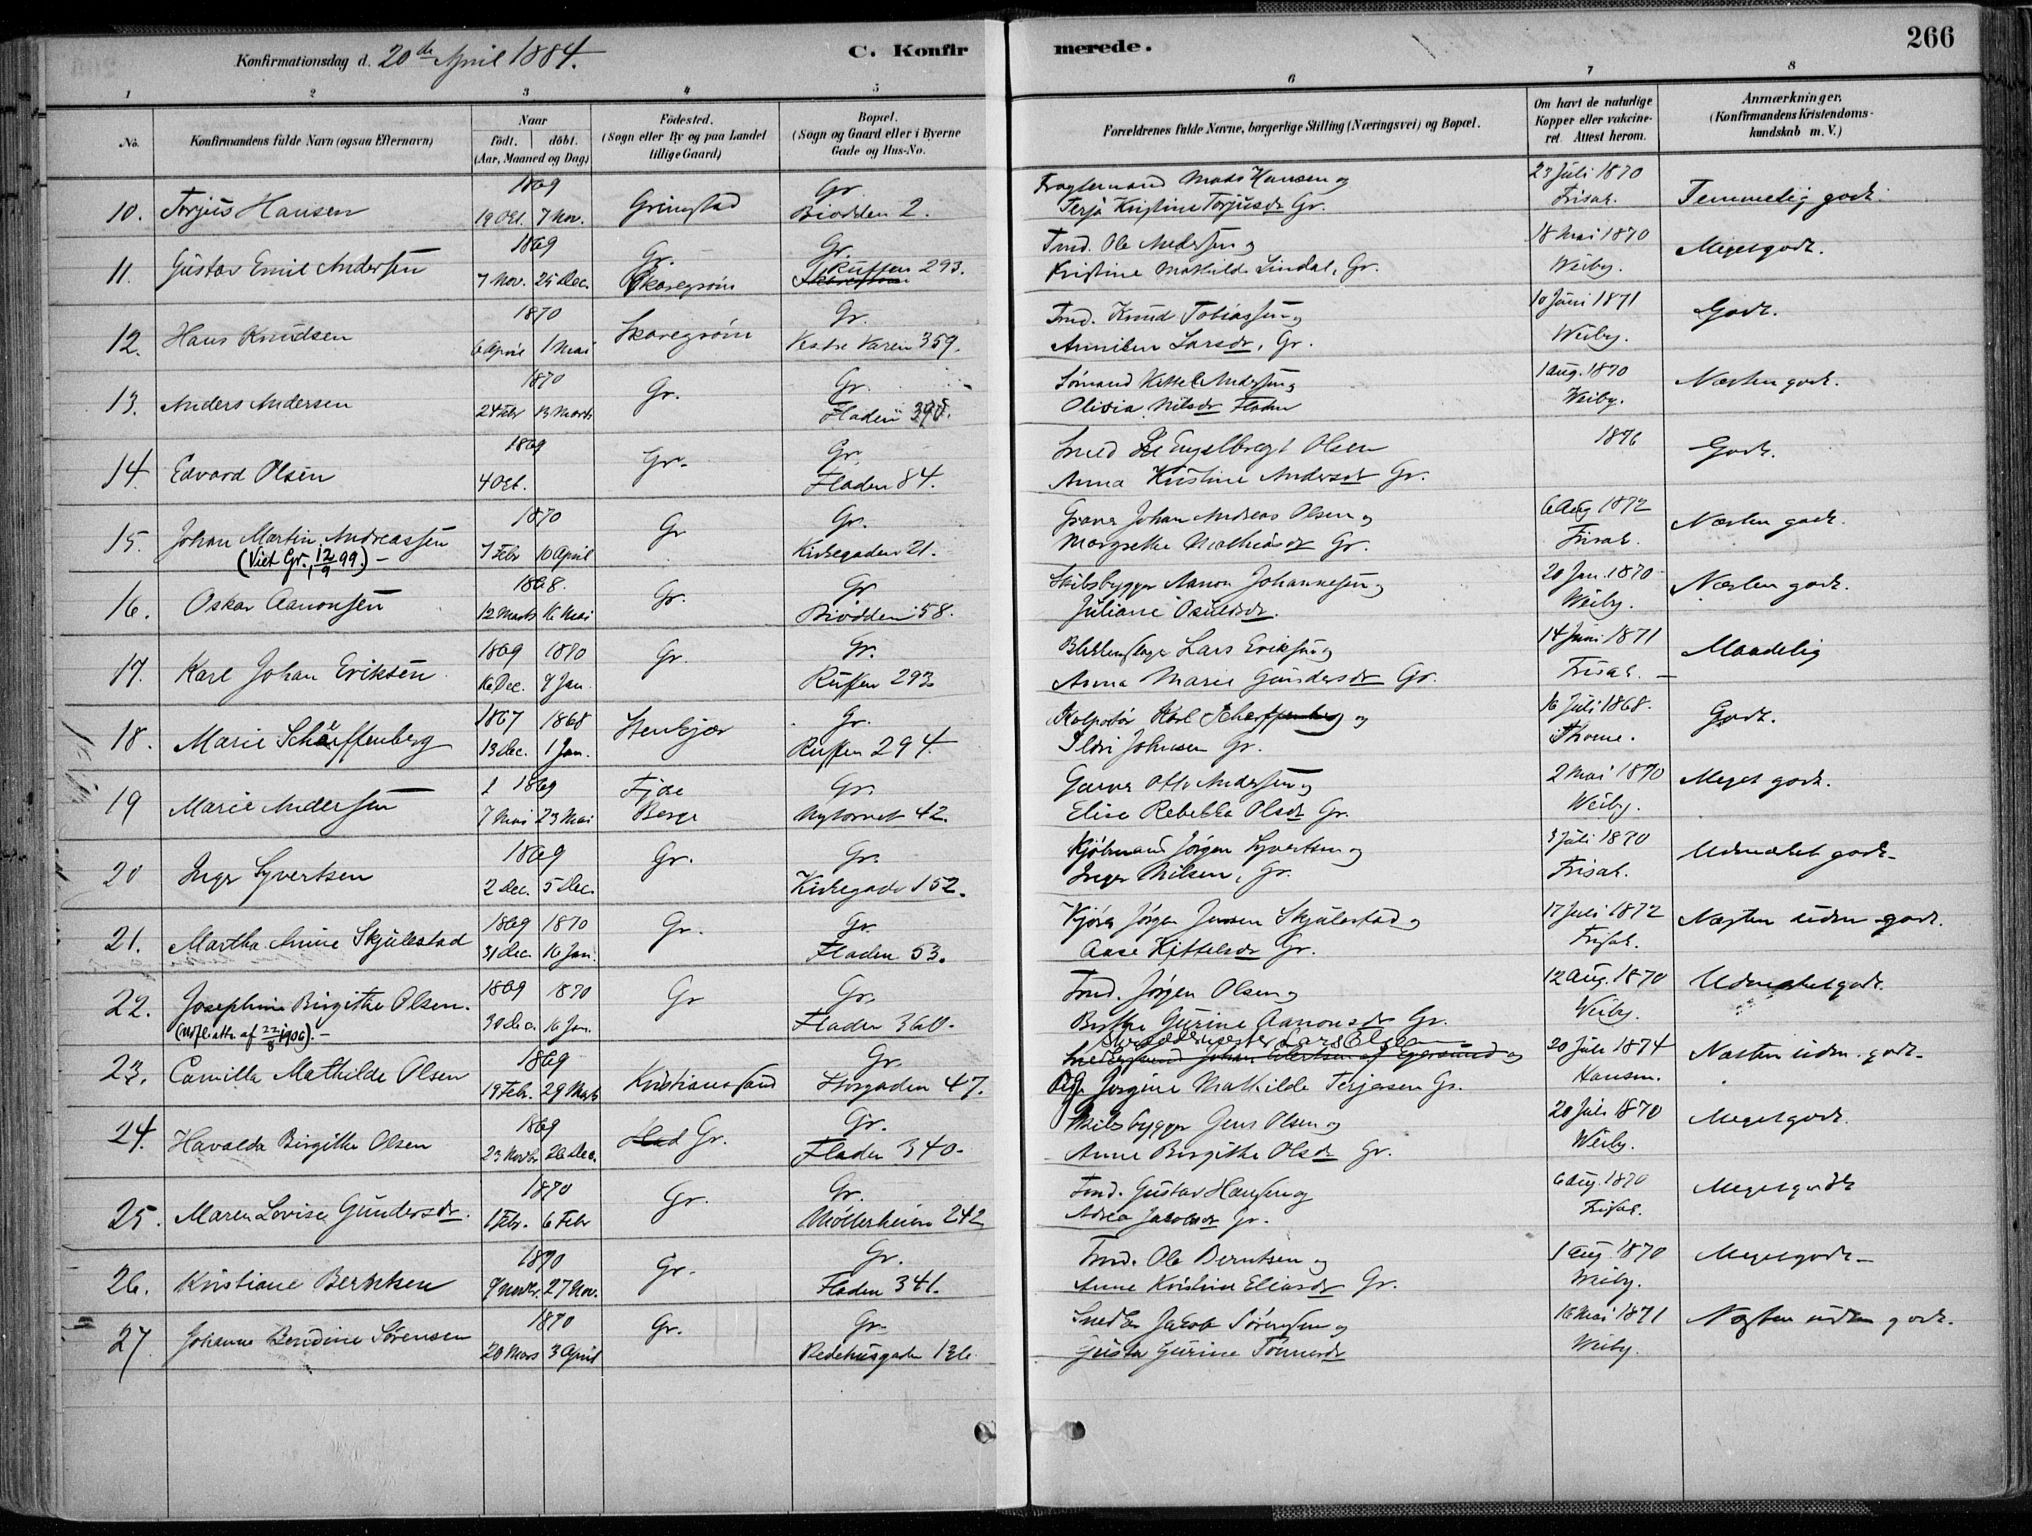 Konfirmationsdag d. 20de April 1884. C. Konfirmerede. 266
1 2 3 4 5 6 7 8
No. Konfirmandens fulde Navn (ogsaa Efternavn) Naar födt. döbt. (Aar, Maaned og Dag) Födested. (Sogn eller By og paa Landet tillige Gaard) Bopæl. (Sogn og Gaard eller i Byerne Gade og Hus-No. Forældrenes fulde Navne, borgerlige Stilling (Næringsvei) og Bopæl. Om havt de naturlige Kopper eller vakcineret. Attest herom. Anmærkninger. (Konfirmandens Kristendomskundskab m. V.)
1869 Gr. Mads Hansen og 23 Juli 1870
10. Torjus Hansen 19 Okt. 7 Nov. Grimstad Biodden 2. Terja Kristine Torjusdr Gr. Frisak. Temmelig godt.
1869 Gr. Gr. Tmd. Ole Andersen og 18 Mai 1870
11. Gustav Emil Andersen 7 Nov. 25 Dec. Skaregrøm Ruffen 293. Kristine Mathilde Lindal, Gr. Weiby. Megetgodt.
1870 Gr. Tmd. Knud Tobiassen og 10 Juni 1871
12. Hans Knudsen 6 April 1 Mai Skaregrøm Vestre Varen 359. Larsdr, Gr. Weiby. Godt.
1870 Gr. Sömand Kittel Andersen og 1 Aug. 1870
13. Anders Andersen 24 Febr 13 Marts Gr. Fladen Olivia Nilsdr Fladen Weiby. Næsten godt.
1869 Gr. Smed Engelbregt Olsen 1876
14. Edvard Olsen 4 Okt. Gr. Fladen 84. Anna Kristine Andersdr Gr. Godt.
1870 Gr. Johan Andreas Olsen og 6 Aug 1872
15. Johan Martin Andreassen 7 Febr 10 April Gr Kirkegaden 21. Margrethe Mathiasdr Gr. Frisak. Næsten godt.
(Viet Gr. 12/9 99.) –
1868. Gr Skibsbygger Aanon Johannesen og 20 Jan. 1870
16. Oskar Aanonsen 12 Marts 16 Mai Gr. Biodden 58. Juliane Osuldsdr. Weiby. Næsten godt.
1869 1870 Gr. Blikkenslager Lars Eriksen og 14 Juni 1871
17. Karl Johan Eriksen 16 Dec. 9 Jan. Gr. Ruffen 293 Anna Marie Gundersdr Gr. Frisak. Maadelig
1867 1868 Gr. Kolportør Karl Scharffenberg og 16 Juli 1868.
18. Marie Schärffenberg 13 Dec. 1 Jan. Stenkjær Ruffen 294. Johnsen Gr. Thorne. Godt.
1869 Fjære Gr. Garver Otto Andersen og 2 Mai 1870
19 Marie Andersen 7 Mai 23 Mai Berge Nytorvet 42. Elise Rebekka Olsdr Gr. Weiby. Meget godt.
1869 Gr. Kjøbmand Jørgen Syvertsen og 3 Juli 1870
20 Inger Syvertsen 2 Dec. 5 Dec. Gr. Kirkegade 152. Inger Nilsen, Gr. Frisak. Udmærket godt.
1869 1870 Gr Jørgen Jensen Skjulestad og 17 Juli 1872
21. Martha Anne Skjulestad 31 Dec. 16 Jan. Gr. Fladen 53. Aase Kittelsdr Gr. Frisak. Næsten udm. godt.
1869 1870 Gr. Tmd. Jørgen Olsen og 12 Aug. 1870
22. Josephine Birgithe Olsen. 30 Dec. 16 Jan. Gr Fladen 360. Berthe Gurine Aanonsdr Gr. Weiby. Udmærket godt.
(Udfl. att. af 22/8 1906). –
1869 Gr. Lars Olsen 20 Juli 1874
23. Camilla Mathilde Olsen 19 Febr. 29 Marts Kristianssand Storgaden 47. Jørgine Mathilde Terjesen Gr. Hansen. Næsten udm. godt.
1869 Gr. Skibsbygger Jens Olsen og 20 Juli 1870
24. Havalda Birgithe Olsen 23 Novbr 26 Dec. Gr. Fladen 340. Anne Birgithe Olsdr Gr. Weiby. Megetgodt.
1870 Gr. Tmd. Gustav Hansen og 6 Aug. 1870
25. Maren Lovise Gundersdr. 1 Febr. 6 Febr Gr. Møllerheien 242 Adrea Jakobsdr Gr. Frisak. Megetgodt
1870 Gr. Tmd. Ole Berntsen og 1 Aug. 1870
26. Kristiane Berntsen 9 Novbr. 27 Nov. Gr. Fladen 341. Anne Kristine Eliasdr Gr. Weiby. Megetgodt.
1870 Gr. Snedker Jakob Sörensen og 16 Mai 1871
27. Johanne Bendine Sörensen 20 Mars 3 April Gr. Redehusgaden 136. Gurine Tönnesdr Weiby. Næsten udm. godt.